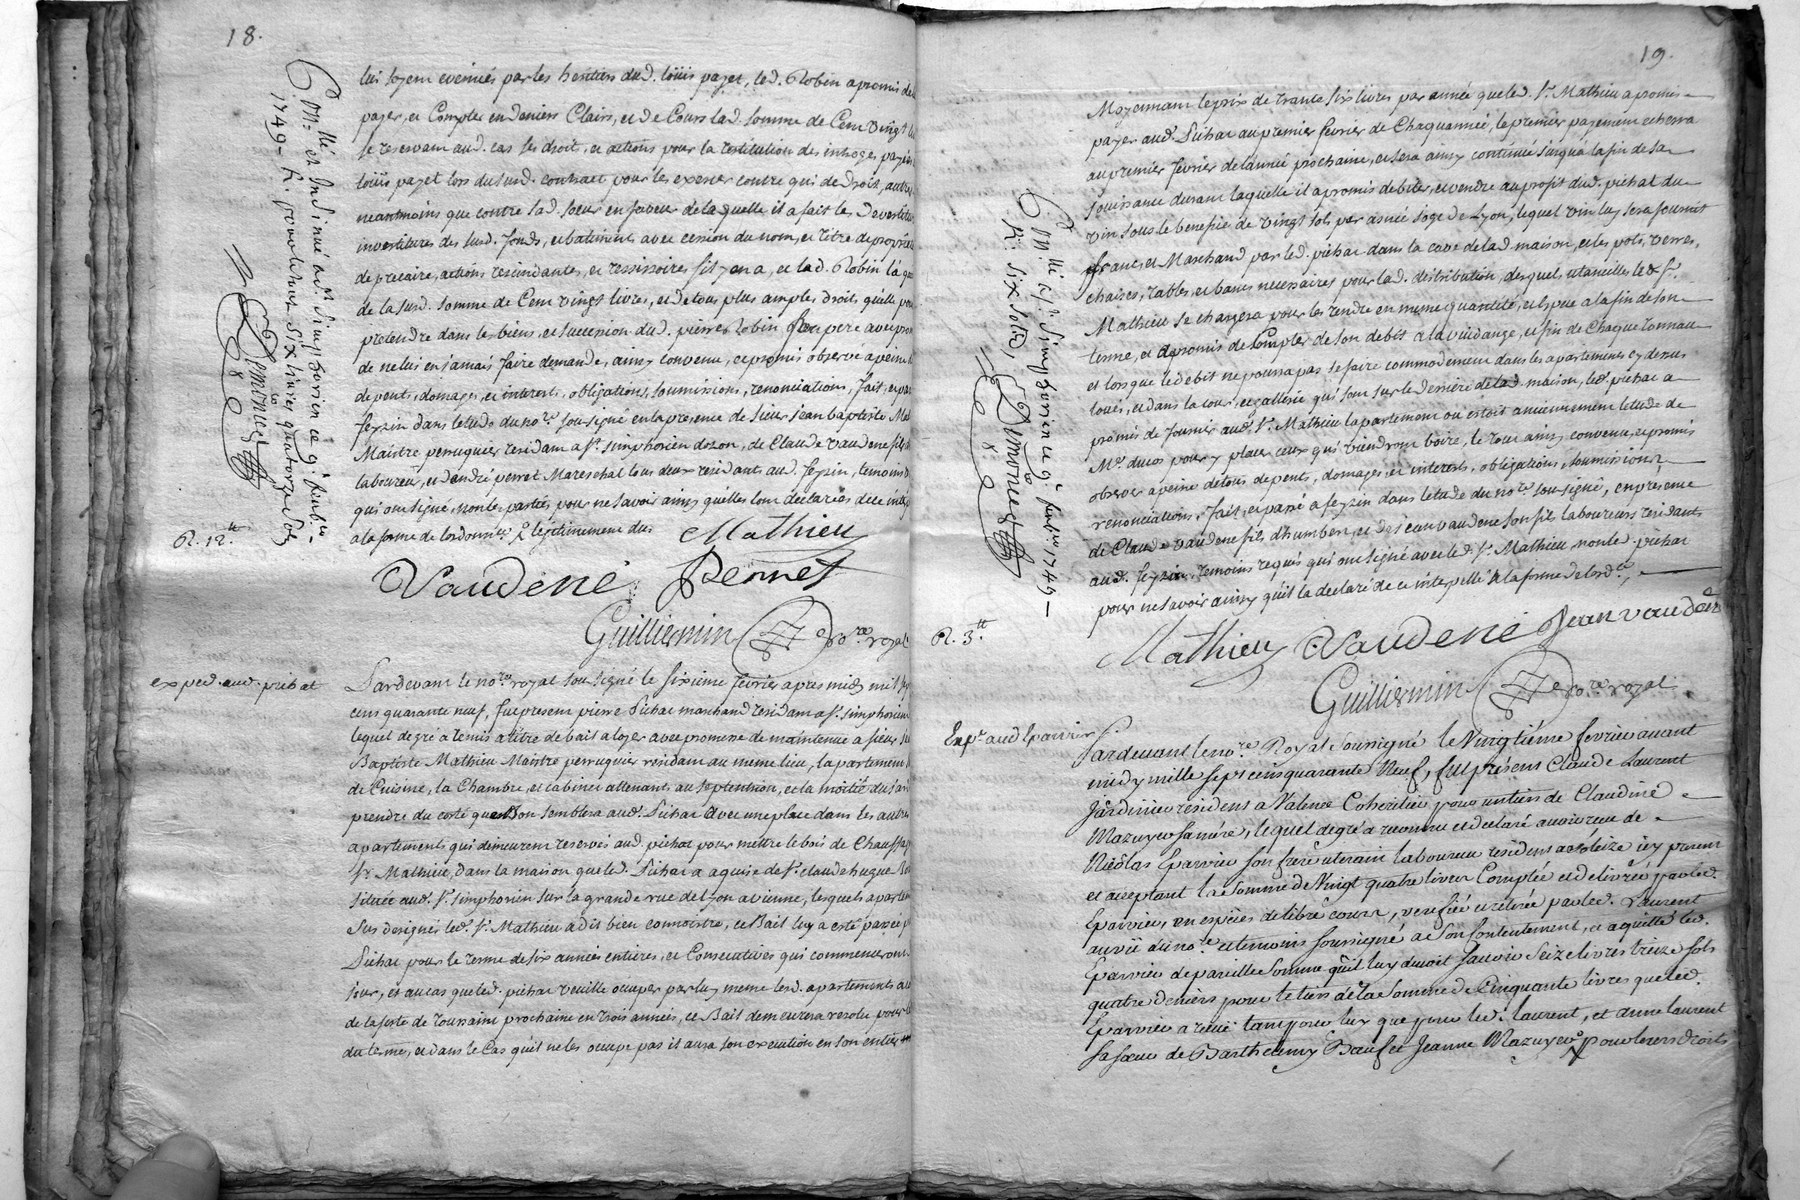 18.
lui soyent evenües par les heritiers dud. loüis payet, led. Robin a promis de
payer, et Compter en deniers Clairs, et de Cours lad. somme de Cent vingt
se reservant aud. cas ses droits, et actions pour la restitution des introges payés
loüis payet lors dususd. contract pour les exercer contre qui de Droit, autre
neantmoins que contre sad. soeur en faveur de laquelle il a fait les Devestitures
investitures des susd. fonds, et batiments avec cession du nom, et titre de proprieté
de precaire, actions rescindantes, et rescisoires s'il y en a, et lad. Robin là
de la susd. somme de Cent vingt livres, et de tous plus amples droits qu'elle
pretendre dans les biens, et succession dud. pierre Robin son pere avec prom
de ne luis en jamais faire demande, ainsy convenu, et promis observé a peine
depents, domages, et interets, obligations, soumissions, renonciations, fait, et passé
feyzin dans letude du no.re sousigné en la presence de sieur jean baptiste Mat
Maistre perruquier residant a St. simphorien dozon, de Claude vaudene fils
laboureur, et d'andré perret Mareschal tous deux residants aud. feyzin, temoins
qui ont signé, non les parties pour ne savoir ainsy qu'elles l'ont declarées de ce interp
a la forme de lordonn.ce
Mathieu
Vaudené Perret
Guilliermin no.re royal
C.on.llé et Insinué a St. Simphorien ce 9.e fevrier
1749 R. pour le tout six livres quatorze sols
Demoncel
R. 12.tt
exped. aud. pichat
Pardevant le no.re royal sousigné le sixieme fevrier apres midy mil sept
cents quarante neuf, fut present pierre Pichat marchand residant a St. simphorien
lequel de gré a remis a titre de bail a loyer avec promesse de maintenue a sieur
Baptiste Mathieu Maistre perruquier residant au meme lieu, lapartement
de Cuisine, la Chambre, et cabinet attenant, au septentrion, et la moitié du
prendre du costé que bon semblera aud. Pichat avec une place dans les autres
apartements qui demeurent reservés aud. pichat pour mettre le bois de Chauffage
Sr. Mathieu, dans la maison que led. Pichat a aquise de Sr. claude hugue
située aud. St. simphorien sur la grande rue de Lyon a vienne, lesquels apartements
sus designé led. Sr. Mathieu a dit bien connoistre, ce Bail luy a esté passé
Pichat pour le terme de six années entieres, et Consecutives qui commenceront
jour, et au cas que led. pichat veuille ocuper par luy meme lesd. apartements
de la feste de Toussaint prochaine en trois années, ce Bail demeurera resolu pour
du terme, et dans le Cas qu'il ne les ocupe pas il aura son execution en son entier
19.
Moyennant le prix de trante six livres par année que led. Sr. Mathieu a promis
payer aud. Pichat au premier fevrier de Chaque année, le premier payement echerra
au premier fevrier de l'année prochaine, et sera ainsy continué jusqu'a la fin de sa
jouissance durant laquelle il a promis debiter, et vendre au profit dud. pichat du
vin sous le benefice de vingt sols par asnée jauge de Lyon, lequel vin luy sera fournit
franc, et Marchand par led. pichat dans la cave de lad. maison, et les pots, verres,
chaises, tables, et bancs necessaires pour lad. distribution, desquels utancilles led. Sr.
Mathieu se chargera pour les rendre en meme quantité, et espece a la fin de son
terme, et a promis de compter de son debit a la vuidange, et fin de Chaque Tonneau
et lorsque le debit ne pourra pas se faire commodement dans les apartements cy dessus
loués, et dans la cour, et gallerie qui sont sur le derriere de lad. maison, led. pichat a
promis de fournir aud. Sr. Mathieu lapartement ou estoit anciennement letude de
Me. ducos pour y placer ceux qui viendront boire, le tout ainsy convenu, et promis
observer a peine de tous depents, domages et interets, obligations, soumissions,
renonciations, fait, et passé a feyzin dans letude du no.re sousigné, en presence
de Claude vaudene fils d'humbert, et de jean vaudene son fils laboureurs residants
aud. feyzin, temoins requis qui ont signé avec led. Sr. Mathieu non led. pichat
pour ne savoir ainsy qu'il la declaré de ce interpellé a la forme de lord.ce
Mathieu Vaudené Jean vauden
Guilliermin no.re royal
C.on.llé St. Simphorien ce 9.e fevrier 1749
R. six sols,
Demoncel
R. 3.tt
Exp.é aud Eparvier
Pardevant le no.re Royal Sousigné le Vingtiéme fevrier avant
midy mille sept cens quarante Neuf, fut présent Claude Laurent
jardinier residens a Valence Coheritier pour un tiers de Claudine
Mazuyer sa mére, lequel de gré a reconnu et declaré avoir reçu de
Nicôlas Eparvier son frere uterain laboureur residens a Soleize icy present
et aceptant la somme de Vingt quatre livres Comptée et delivrée par led.
Eparvier, en espéces de libre cours, verifiée et retirée par led. Laurent
au vû du no.re et temoins sousigné a son Contentement, et a quitté led.
Eparvier de pareille somme qu'il luy devoit savoir seize livres treize sols
quatre deniers pour le tiers de la somme de Cinquante livres que led.
Eparvier a reçüe tant pour luy que pour led. laurent, et anne laurent
sa soeur de Barthelemy Bauf et Jeanne Mazuyer pour leurs droits